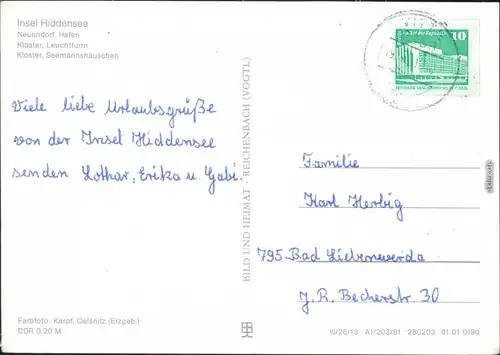 Insel Hiddensee
Neuendorf, Hafen
Kloster, Leuchtturm
Kloster, Seemannshäuschen
10
Palast der Republik
Viele liebe Urlaubsgrüße
von der Insel Hiddensee
senden Lothar, Erika u. Gabi.
BILD UND HEIMAT REICHENBACH (VOGTL)
Familie
Karl Herbig
795 Bad Liebenwerda
J. R. Becherstr. 30
Farbfoto: Karpf, Oelsnitz (Erzgeb.)
DDR 0,20 M
III/26/13 A1/203/81 280203 01 01 0190